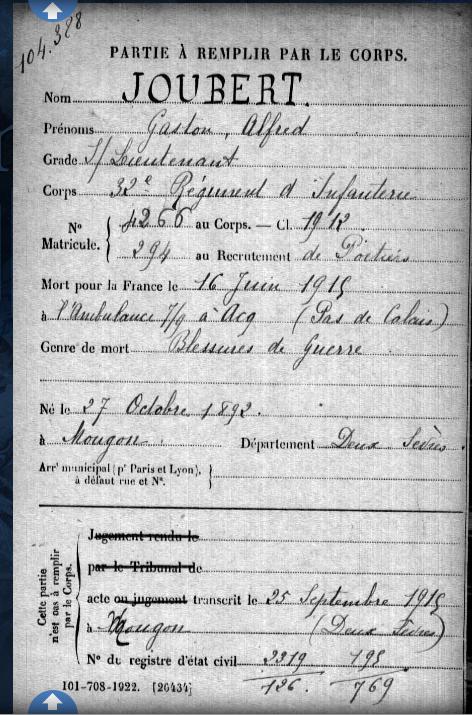 104.388
PARTIE À REMPLIR PAR LE CORPS.
Nom JOUBERT.
Prénoms Gaston, Alfred
Grade S/Lieutenant
Corps 32e Régiment d'Infanterie
No Matricule. 4266 au Corps. — Cl. 1912.
294 au Recrutement de Poitiers
Mort pour la France le 16 Juin 1915
à l'Ambulance 7/9 à Acq (Pas de Calais)
Genre de mort Blessures de Guerre
Né le 27 Octobre 1892.
à Mougon Département Deux Sèvres
Arrt municipal (pr Paris et Lyon),
à défaut rue et No.
Cette partie n'est pas à remplir par le Corps.
Jugement rendu le
par le Tribunal de
acte ou jugement transcrit le 25 Septembre 1915
à Mougon (Deux Sèvres)
No du registre d'état civil 195
126. 769
101-708-1922. [26434]